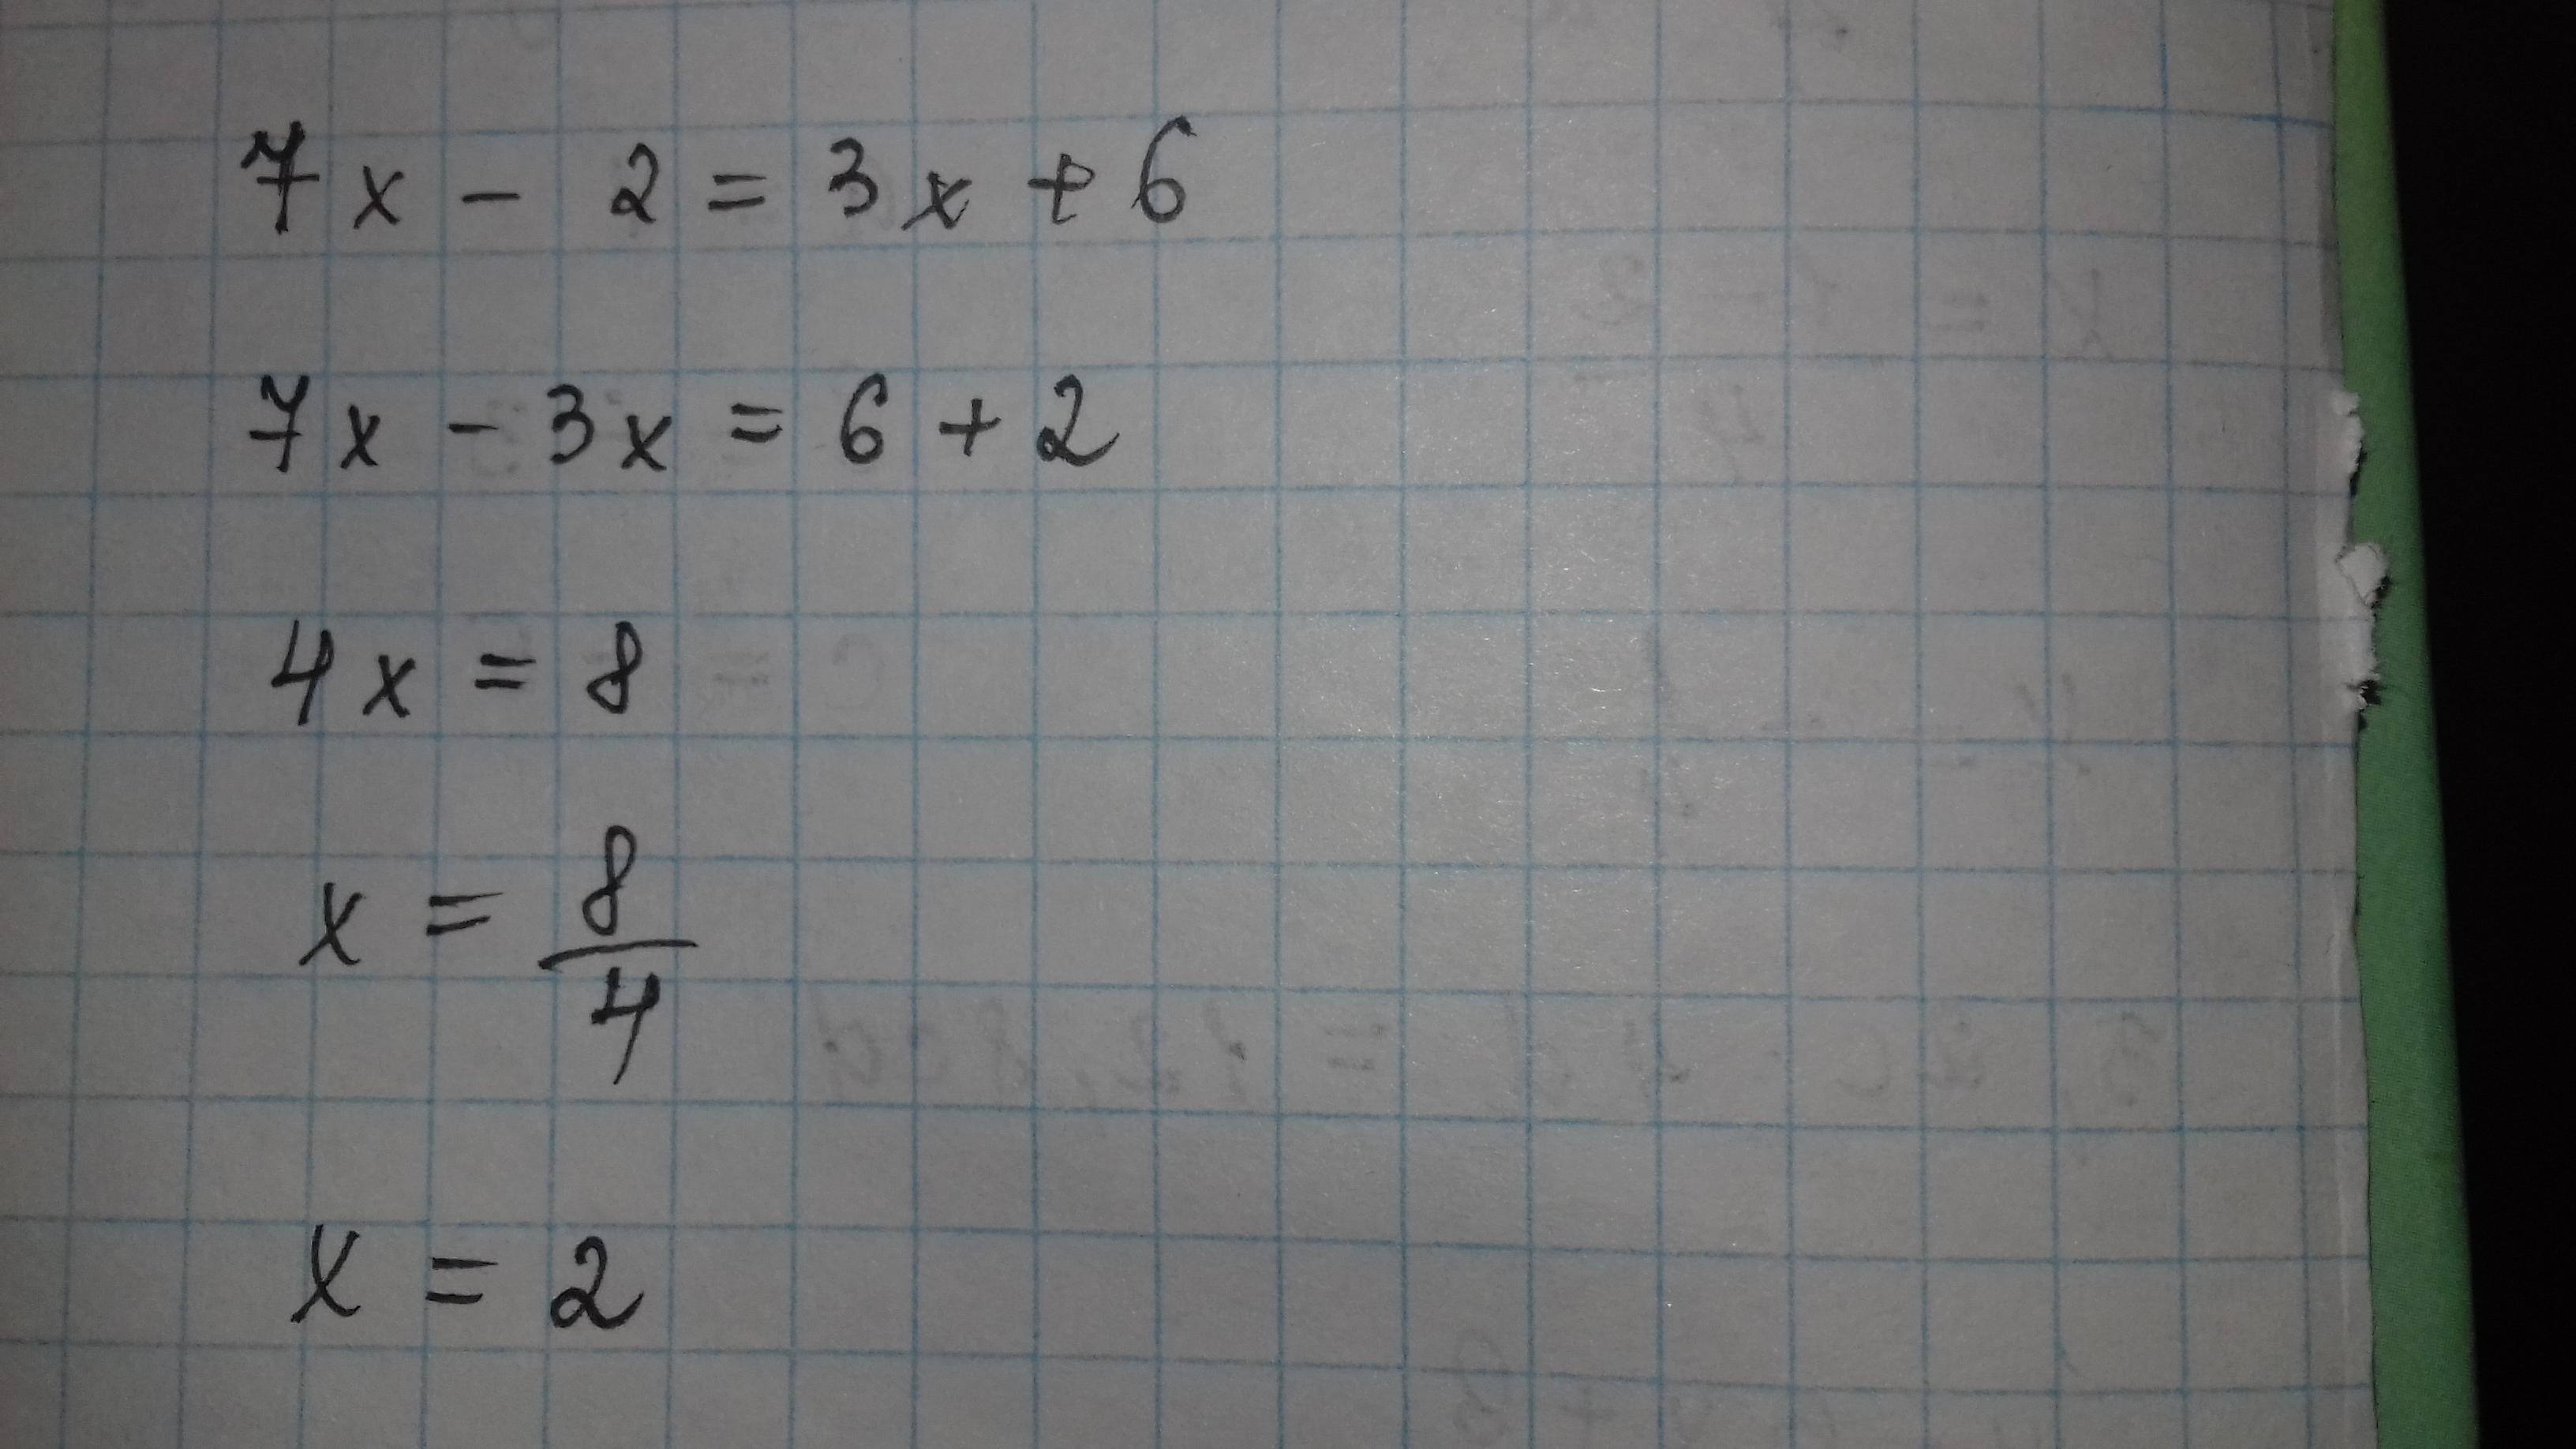 7x - 2 = 3x + 6
7x - 3x = 6 + 2
4x = 8
x = 8/4
x = 2